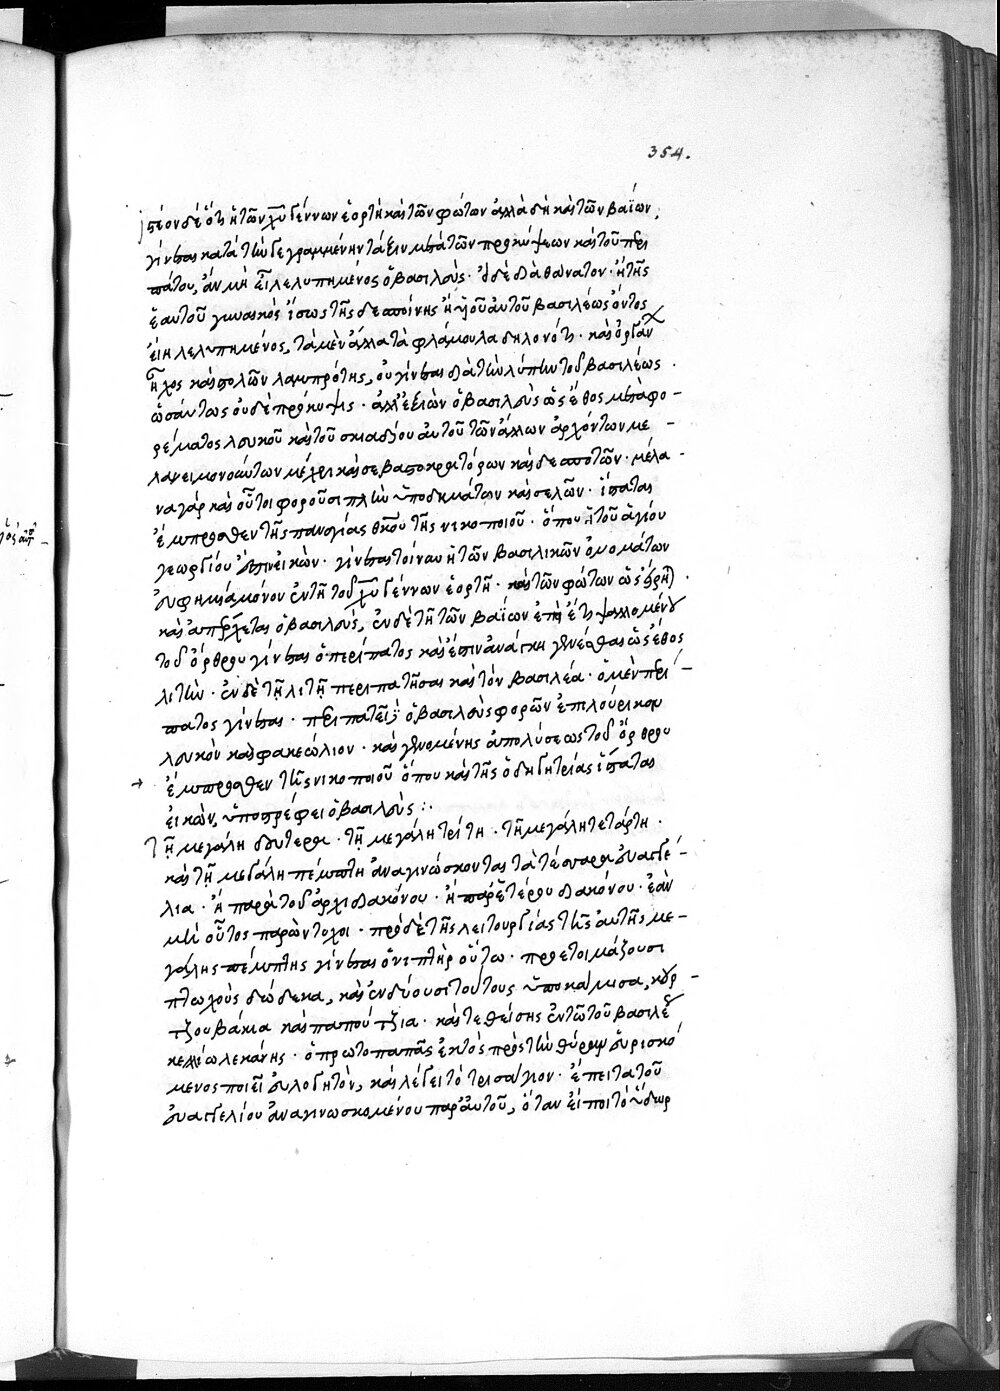 354.
ἰστέον δὲ ὅτι ἡ τῶν χυ γέννων ἑορτὴ καὶ τῶν φώτων ἀλλὰ δὴ καὶ τῶν βαΐων,
γίνεται κατὰ τὴν γεγραμμένην τάξιν μετὰ τῶν προκύψεων καὶ τοῦ περι
πάτου, ἂν μὴ εἴη λελυπημένος ὁ βασιλεὺς. εἰ δὲ διὰ θάνατον. ἢ τῆς
ἑαυτοῦ γυναικὸς ἴσως τῆς δεσποίνης ἢ υἱοῦ αὐτοῦ βασιλέως ὄντος
εἴη λελυπημένος, τὰ μὲν ἄλλα τὰ φλάμουλα δηλονότι. καὶ ὀργάν
ἦχος καὶ στολῶν λαμπρότης, οὐ γίνεται διὰ τὴν λύπην τοῦ βασιλέως.
ὡσαύτως οὐδὲ πρόκυψις. ἀλλ' ἐξιὼν ὁ βασιλεὺς ὡς ἔθος μετὰ φο-
ρέματος λευκοῦ καὶ τοῦ σκιαδίου αὐτοῦ τῶν ἄλλων ἀρχόντων με-
λανειμονούντων μέχρι καὶ σεβαστοκρατόρων καὶ δεσποτῶν. μέλα-
να γὰρ καὶ οὗτοι φοροῦσι πλὴν ὑποδημάτων καὶ σελῶν. ἵσταται
ἔμπροσθεν τῆς παναγίας θκου τῆς νικοποιοῦ. ὅπου ἡ τοῦ ἁγίου
γεωργίου ἐστὶν εἰκών. γίνεται τοίνυν ἡ τῶν βασιλικῶν ὀνομάτων
εὐφημία μόνον ἐν τῇ τοῦ χυ γέννων ἑορτῇ. καὶ τῶν φώτων ὡς εἴρητ.
καὶ ἀπέρχεται ὁ βασιλεύς, ἐν δὲ τῇ τῶν βαΐων ἐπεὶ ἔτι ψαλλομένου
τοῦ ὄρθρου γίνεται ὁ περίπατος καὶ ἔστιν ἀνάγκη γενέσθαι ὡς ἔθος
λιτήν. ἐν δὲ τῇ λιτῇ περιπατῆσαι καὶ τὸν βασιλέα. ὁ μὲν περί-
πατος γίνεται. περιπατεῖ δὲ ὁ βασιλεὺς φορῶν ἐπιλούρικον
λευκὸν καὶ φακεώλιον. καὶ γενομένης ἀπολύσεως τοῦ ὄρθρου
ἔμπροσθεν τῆς νικοποιοῦ ὅπου καὶ τῆς ὁδηγητρίας ἵσταται
εἰκών, ὑποστρέφει ὁ βασιλεύς :.
τῇ μεγάλη δευτέρα. τῇ μεγάλη τρίτη. τῇ μεγάλη τετάρτη.
καὶ τῇ μεγάλη πέμπτη ἀναγινώσκονται τὰ τέσσαρα εὐαγγέ-
λια. ἢ παρὰ τοῦ ἀρχιδιακόνου. ἢ παρ' ἑτέρου διακόνου. ἐὰν
μὴ οὗτος παρὼν τύχοι. πρὸ δὲ τῆς λειτουργίας τῆς αὐτῆς με-
γάλης πέμπτης γίνεται ὁ νιπτὴρ οὕτω. προετοιμάζουσι
πτωχοὺς δώδεκα, καὶ ἐνδύουσι τούτους ὑποκάμισα, κουρ-
τζουβάκια καὶ παπούτζια. καὶ τεθείσης ἐν τῷ τοῦ βασιλέως
κελλίω λεκάνης. ὁ πρωτοπαπᾶς ἐκτὸς πρὸς τὴν θύραν εὑρισκό
μενος ποιεῖ εὐλογητόν, καὶ λέγει τὸ τρισάγιον. ἔπειτα τοῦ
εὐαγγελίου ἀναγινωσκομένου παρ' αὐτοῦ, ὅταν εἴποι τὸ ὕδωρ